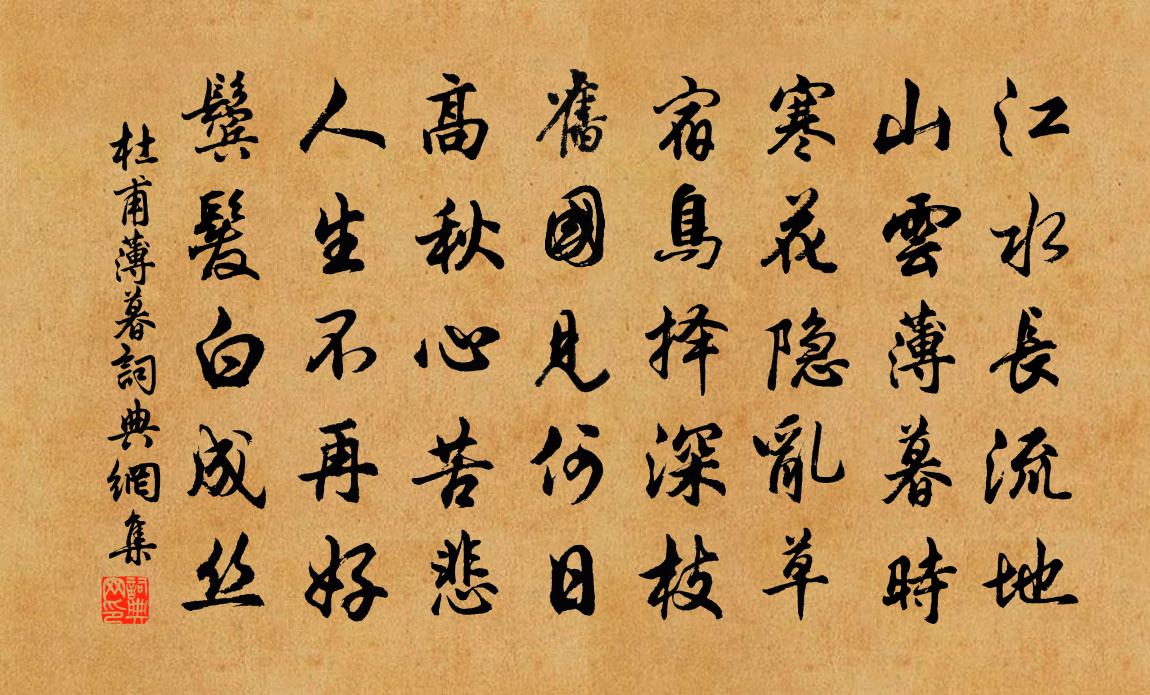 江水長流地
山雲薄暮時
寒花隐亂草
宿鳥择深枝
舊國見何日
高秋心苦悲
人生不再好
鬓髮白成丝
杜甫薄暮詞典網集
詞典网印